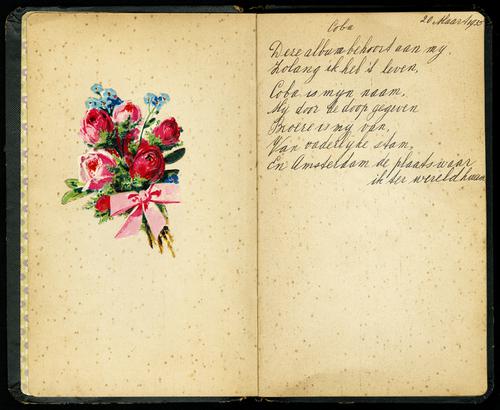 Coba
20 Maart
Deze album behoort aan my.
Zolang ik heb 't leven,
Coba is myn naam,
My door de doop gegeven
Broere is my van,
Van vaderlyke stam,
En Amsterdam de plaats waar
ik ter wereld kwam